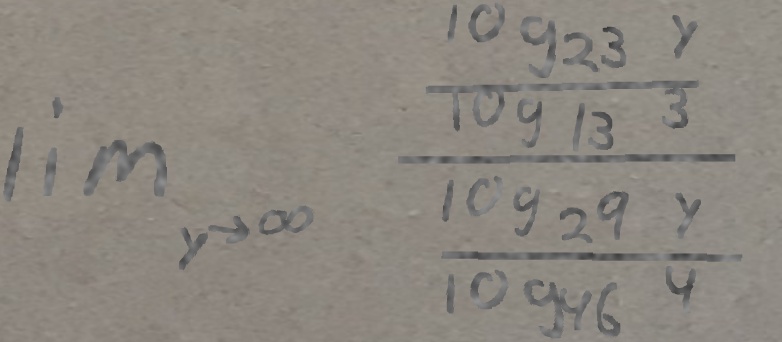 lim_{y→∞} \frac{\frac{log_{23} y}{log_{13} 3}}{\frac{log_{29} y}{log_{46} 4}}